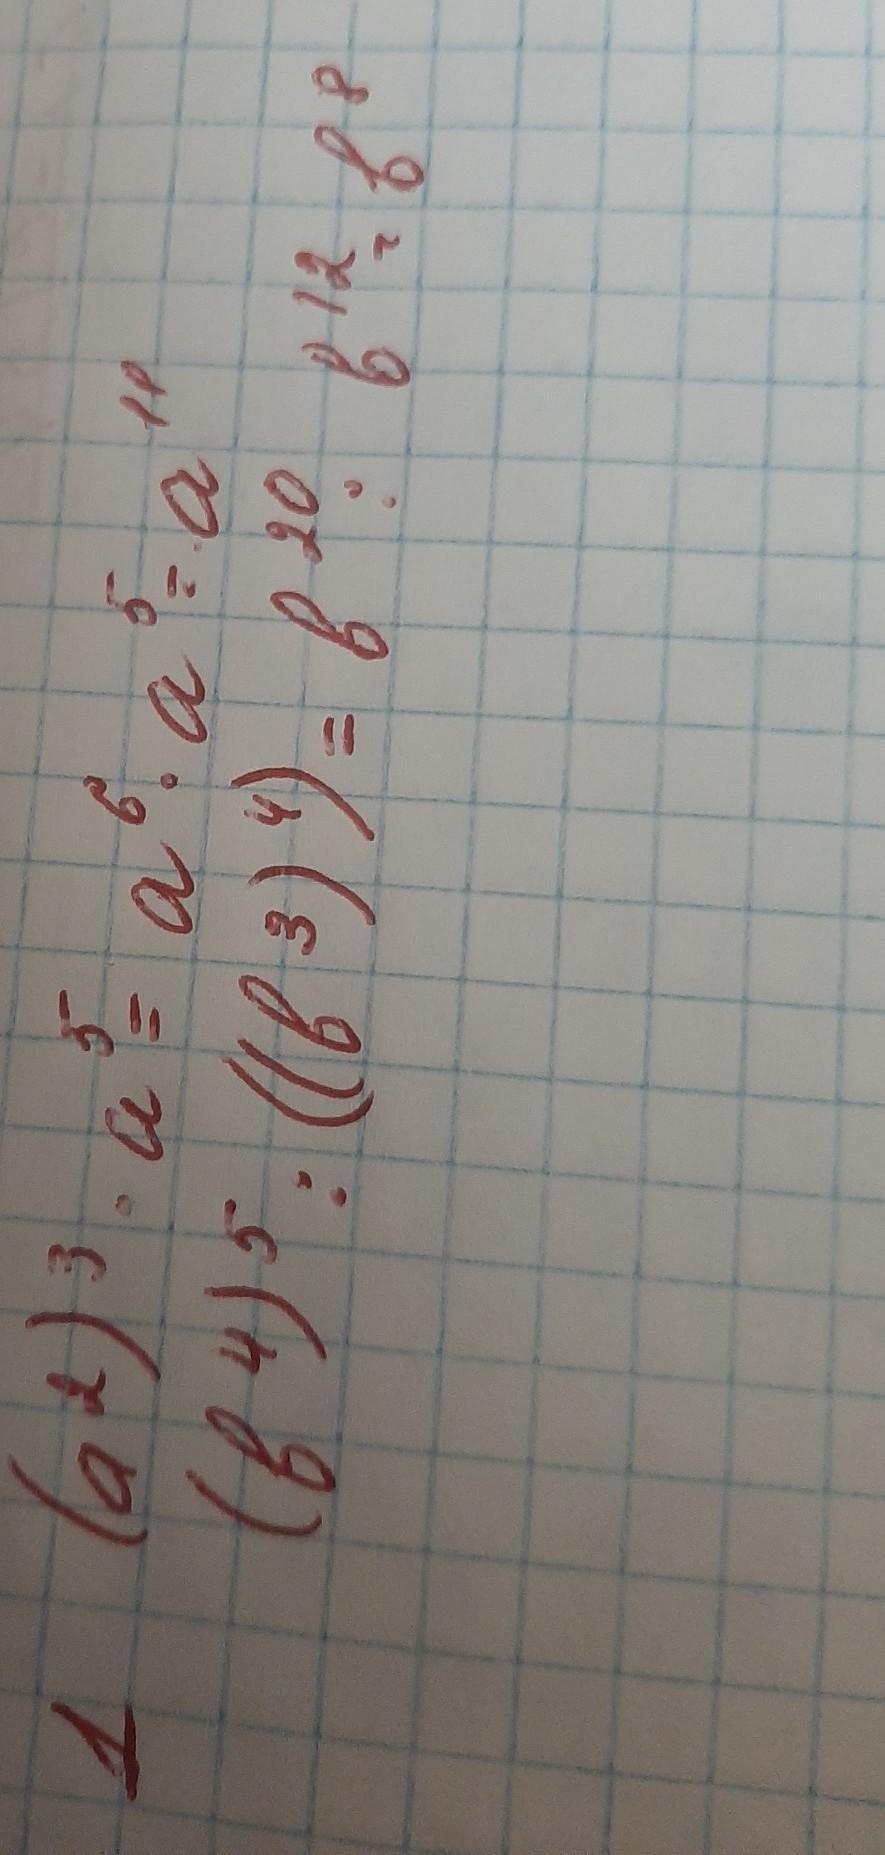 1 (a²)³ · a⁵ = a⁶ · a⁵ = a¹¹
(b⁴)⁵ : ((b³)⁴) = b²⁰ : b¹² = b⁸